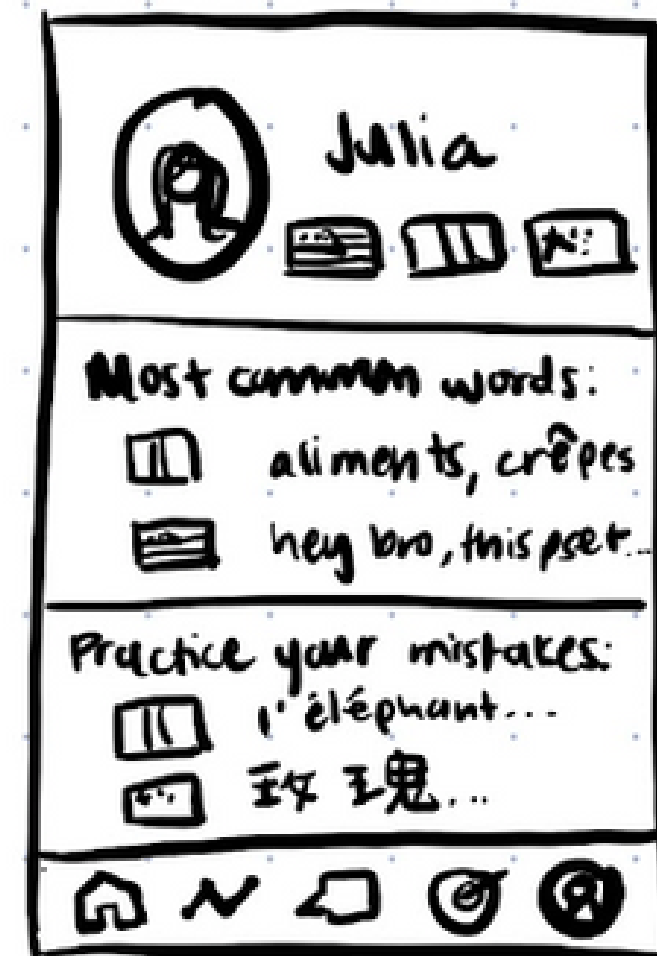 Julia
Most common words:
aliments, crêpes
hey bro, this pset...
Practice your mistakes:
l'éléphant...
玫瑰...